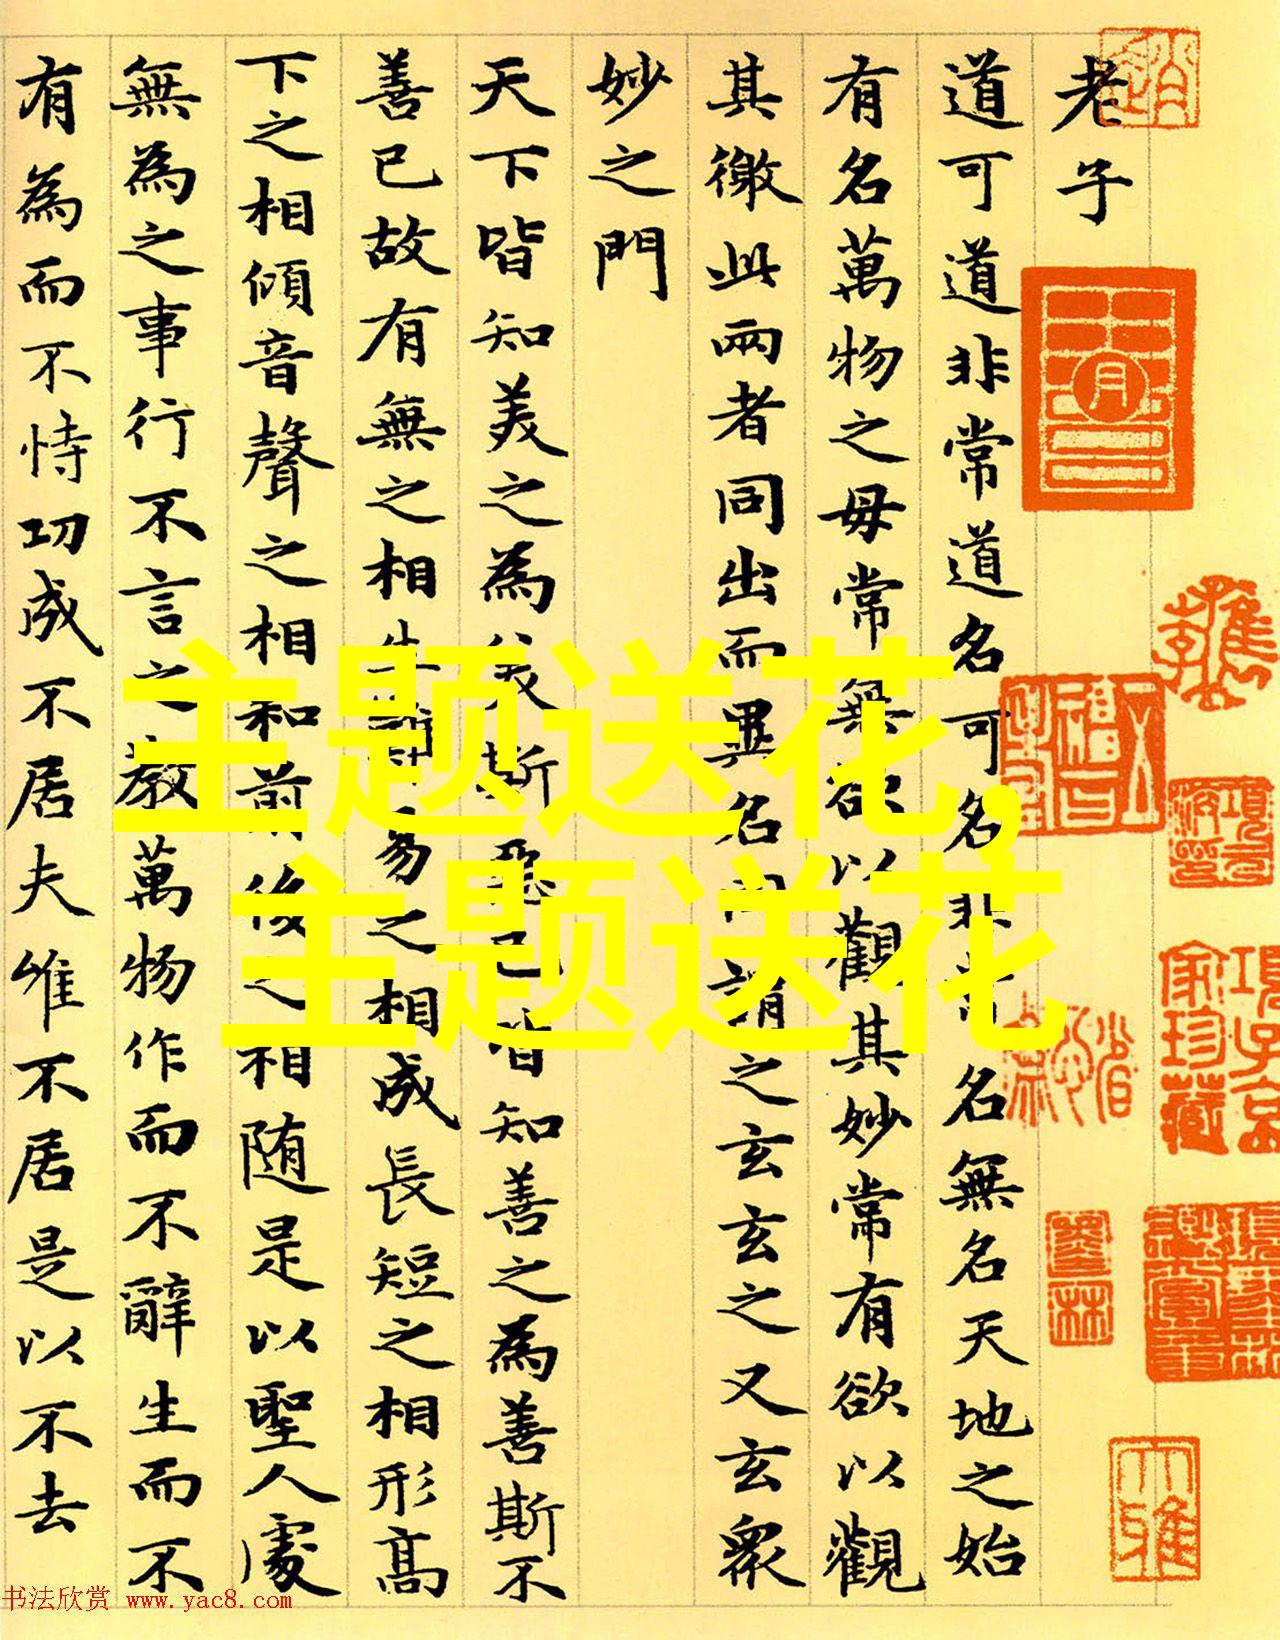 老子
道可道非常道名可名非常名無名天地之始
有名萬物之母常無欲以觀其妙常有欲以觀
其徼此兩者同出而異名同謂之玄玄之又玄衆
妙之門
天下皆知美之為美斯惡已皆知善之為善斯不
善已故有無之相生難易之相成長短之相形高
下之相傾音聲之相和前後之相隨是以聖人處
無為之事行不言之教萬物作而不辭生而不
有為而不恃功成不居夫唯不居是以不去
主题送花,
主题送花
項子京
家珍藏
书法欣赏 www.yac8.com